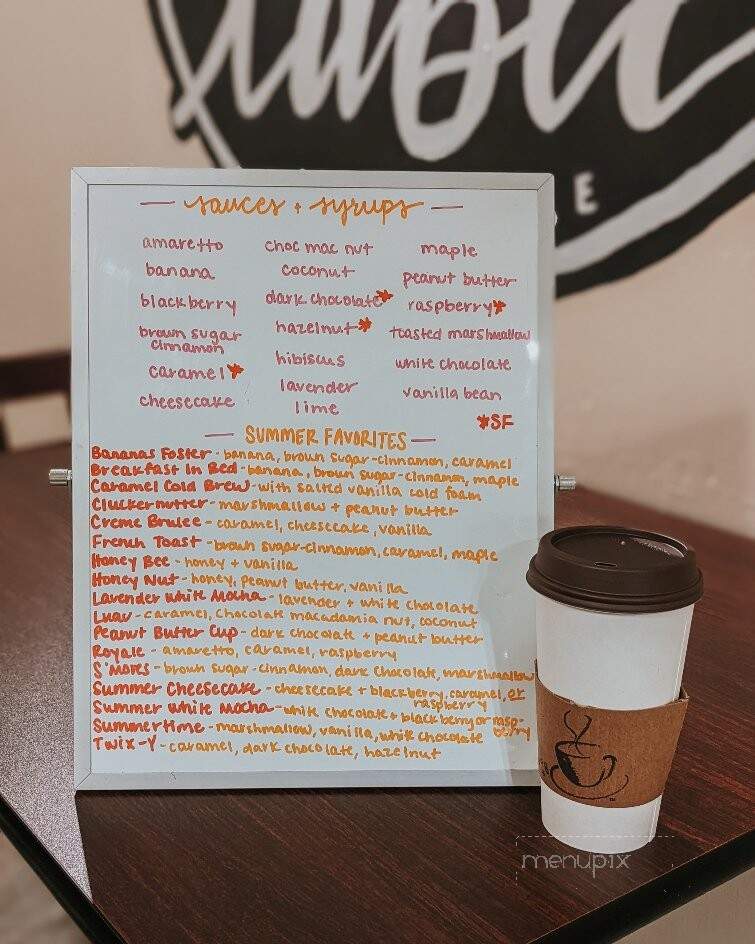 sauces + syrups
amaretto choc mac nut maple
banana coconut peanut butter
blackberry dark chocolate* raspberry*
brown sugar cinnamon hazelnut* toasted marshmallow
caramel* hibiscus white chocolate
cheesecake lavender vanilla bean
lime
*SF
SUMMER FAVORITES
Bananas Foster - banana, brown sugar-cinnamon, caramel
Breakfast In Bed - banana, brown sugar-cinnamon, maple
Caramel Cold Brew - with salted vanilla cold foam
Cluckernutter - marshmallow + peanut butter
Creme Brulee - caramel, cheesecake, vanilla
French Toast - brown sugar-cinnamon, caramel, maple
Honey Bee - honey + vanilla
Honey Nut - honey, peanut butter, vanilla
Lavender White Mocha - lavender + white chocolate
Luau - caramel, chocolate macadamia nut, coconut
Peanut Butter Cup - dark chocolate + peanut butter
Royale - amaretto, caramel, raspberry
S'mores - brown sugar-cinnamon, dark chocolate, marshmallow
Summer Cheesecake - cheesecake + blackberry, caramel, or raspberry
Summer White Mocha - white chocolate + blackberry or raspberry
Summertime - marshmallow, vanilla, white chocolate
Twix-Y - caramel, dark chocolate, hazelnut
menupix